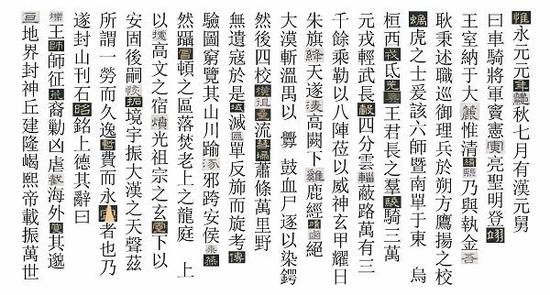 惟永元元年孟秋七月有漢元舅
曰車騎將軍竇憲寅亮聖明登翊
王室納于大麓惟清緝熙乃與執金吾
耿秉述職巡御理兵於朔方鷹揚之校
螭虎之士爰該六師暨南單于東 烏
桓西戎氐羌王君長之羣驍騎三萬
元戎輕武長轂四分雲輜蔽路萬有三
千餘乘勒以八陣莅以威神玄甲耀日
朱旗絳天遂淩高闕下雞鹿經磧鹵絕
大漠斬溫禺以 釁 鼓血尸逐以染鍔
然後四校橫徂星流彗掃蕭條萬里野
無遺寇於是域滅區單反旆而旋考傳
驗圖窮覽其山川踰涿邪跨安侯乘燕
然躡冒頓之區落焚老上之龍庭 上
以攄高文之宿憤光祖宗之玄靈下以
安固後嗣恢拓境宇振大漢之天聲茲
所謂一勞而久逸暫費而永寧者也乃
遂封山刊石昭銘上德其辭曰
鑠王師征荒裔勦凶虐截海外夐其邈
亙地界封神丘建隆嵑熙帝載振萬世